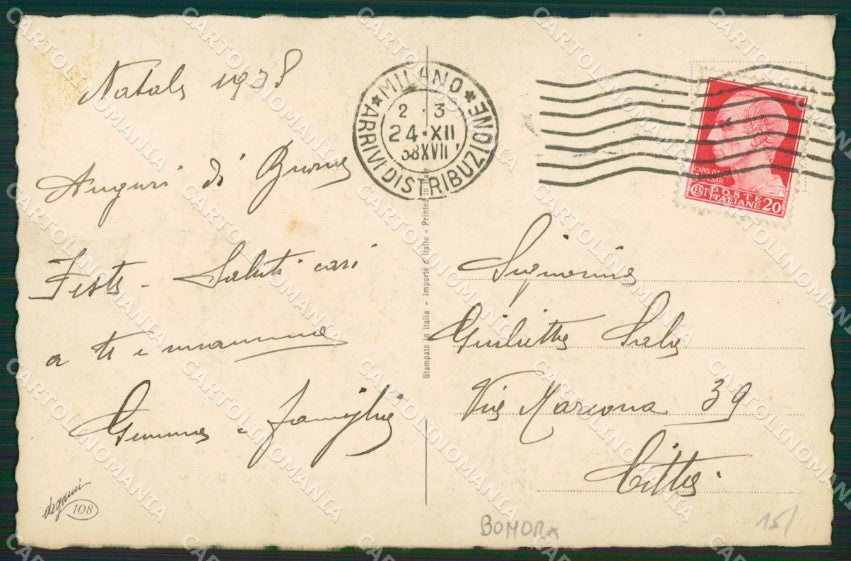 Natale 1938
Auguri di Buone
Feste - Saluti cari
a te e mamma
Gemma e famiglia
degami
108
MILANO
2-3
24·XII
38XVII
ARRIVI DISTRIBUZIONE
Stampato in Italia - Importé d'Italie - Printed in Italy
POSTE
ITALIANE
CENT 20
Signorina
Giulietta Sala
Via Marcona 39
Città
BOMORA
15/
CARTOLINOMANIA